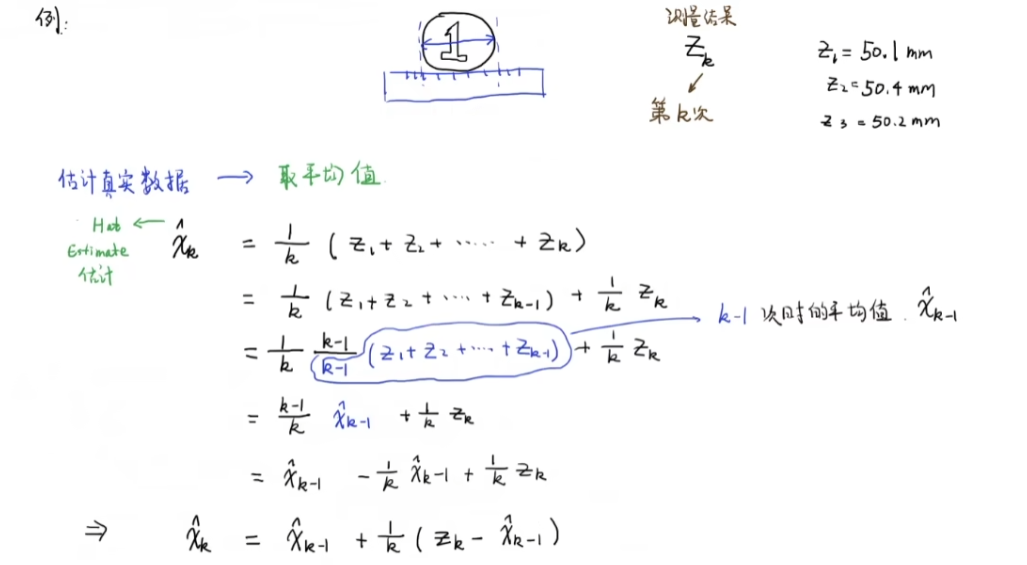 例:
1
测量结果
Z_k
第k次
Z_1 = 50.1 mm
Z_2 = 50.4 mm
Z_3 = 50.2 mm
估计真实数据 → 取平均值.
Hat
Estimate
估计
x̂_k = 1/k (Z_1 + Z_2 + ····· + Z_k)
= 1/k (Z_1 + Z_2 + ···· + Z_{k-1}) + 1/k Z_k
= 1/k (k-1)/(k-1) (Z_1 + Z_2 + ···· + Z_{k-1}) + 1/k Z_k → k-1 次时的平均值. x̂_{k-1}
= (k-1)/k x̂_{k-1} + 1/k Z_k
= x̂_{k-1} - 1/k x̂_{k-1} + 1/k Z_k
⇒ x̂_k = x̂_{k-1} + 1/k (Z_k - x̂_{k-1})